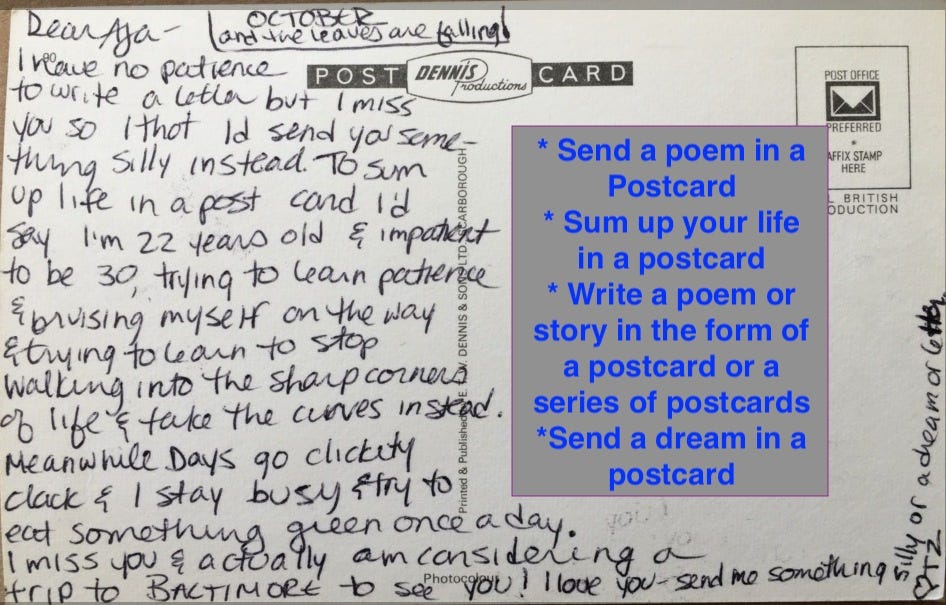 Dear Aja -
OCTOBER
and the leaves are falling!
I have no patience
to write a letter but I miss
you so I thot I'd send you some-
thing silly instead. To sum
up life in a post card I'd
say I'm 22 years old & impatient
to be 30, trying to learn patience
& bruising myself on the way
& trying to learn to stop
walking into the sharp corners
of life & take the curves instead.
Meanwhile Days go clickity
clack & I stay busy & try to
eat something green once a day.
I miss you & actually am considering a
trip to BALTIMORE to see you! I love you - send me something
silly or a dream or letter
POST CARD
DENNIS
Productions
POST OFFICE
PREFERRED
*
AFFIX STAMP
HERE
BRITISH
ODUCTION
Printed & Published
DENNIS & SON LTD
CARBOROUGH
Photocolour
* Send a poem in a
Postcard
* Sum up your life
in a postcard
* Write a poem or
story in the form of
a postcard or a
series of postcards
*Send a dream in a
postcard